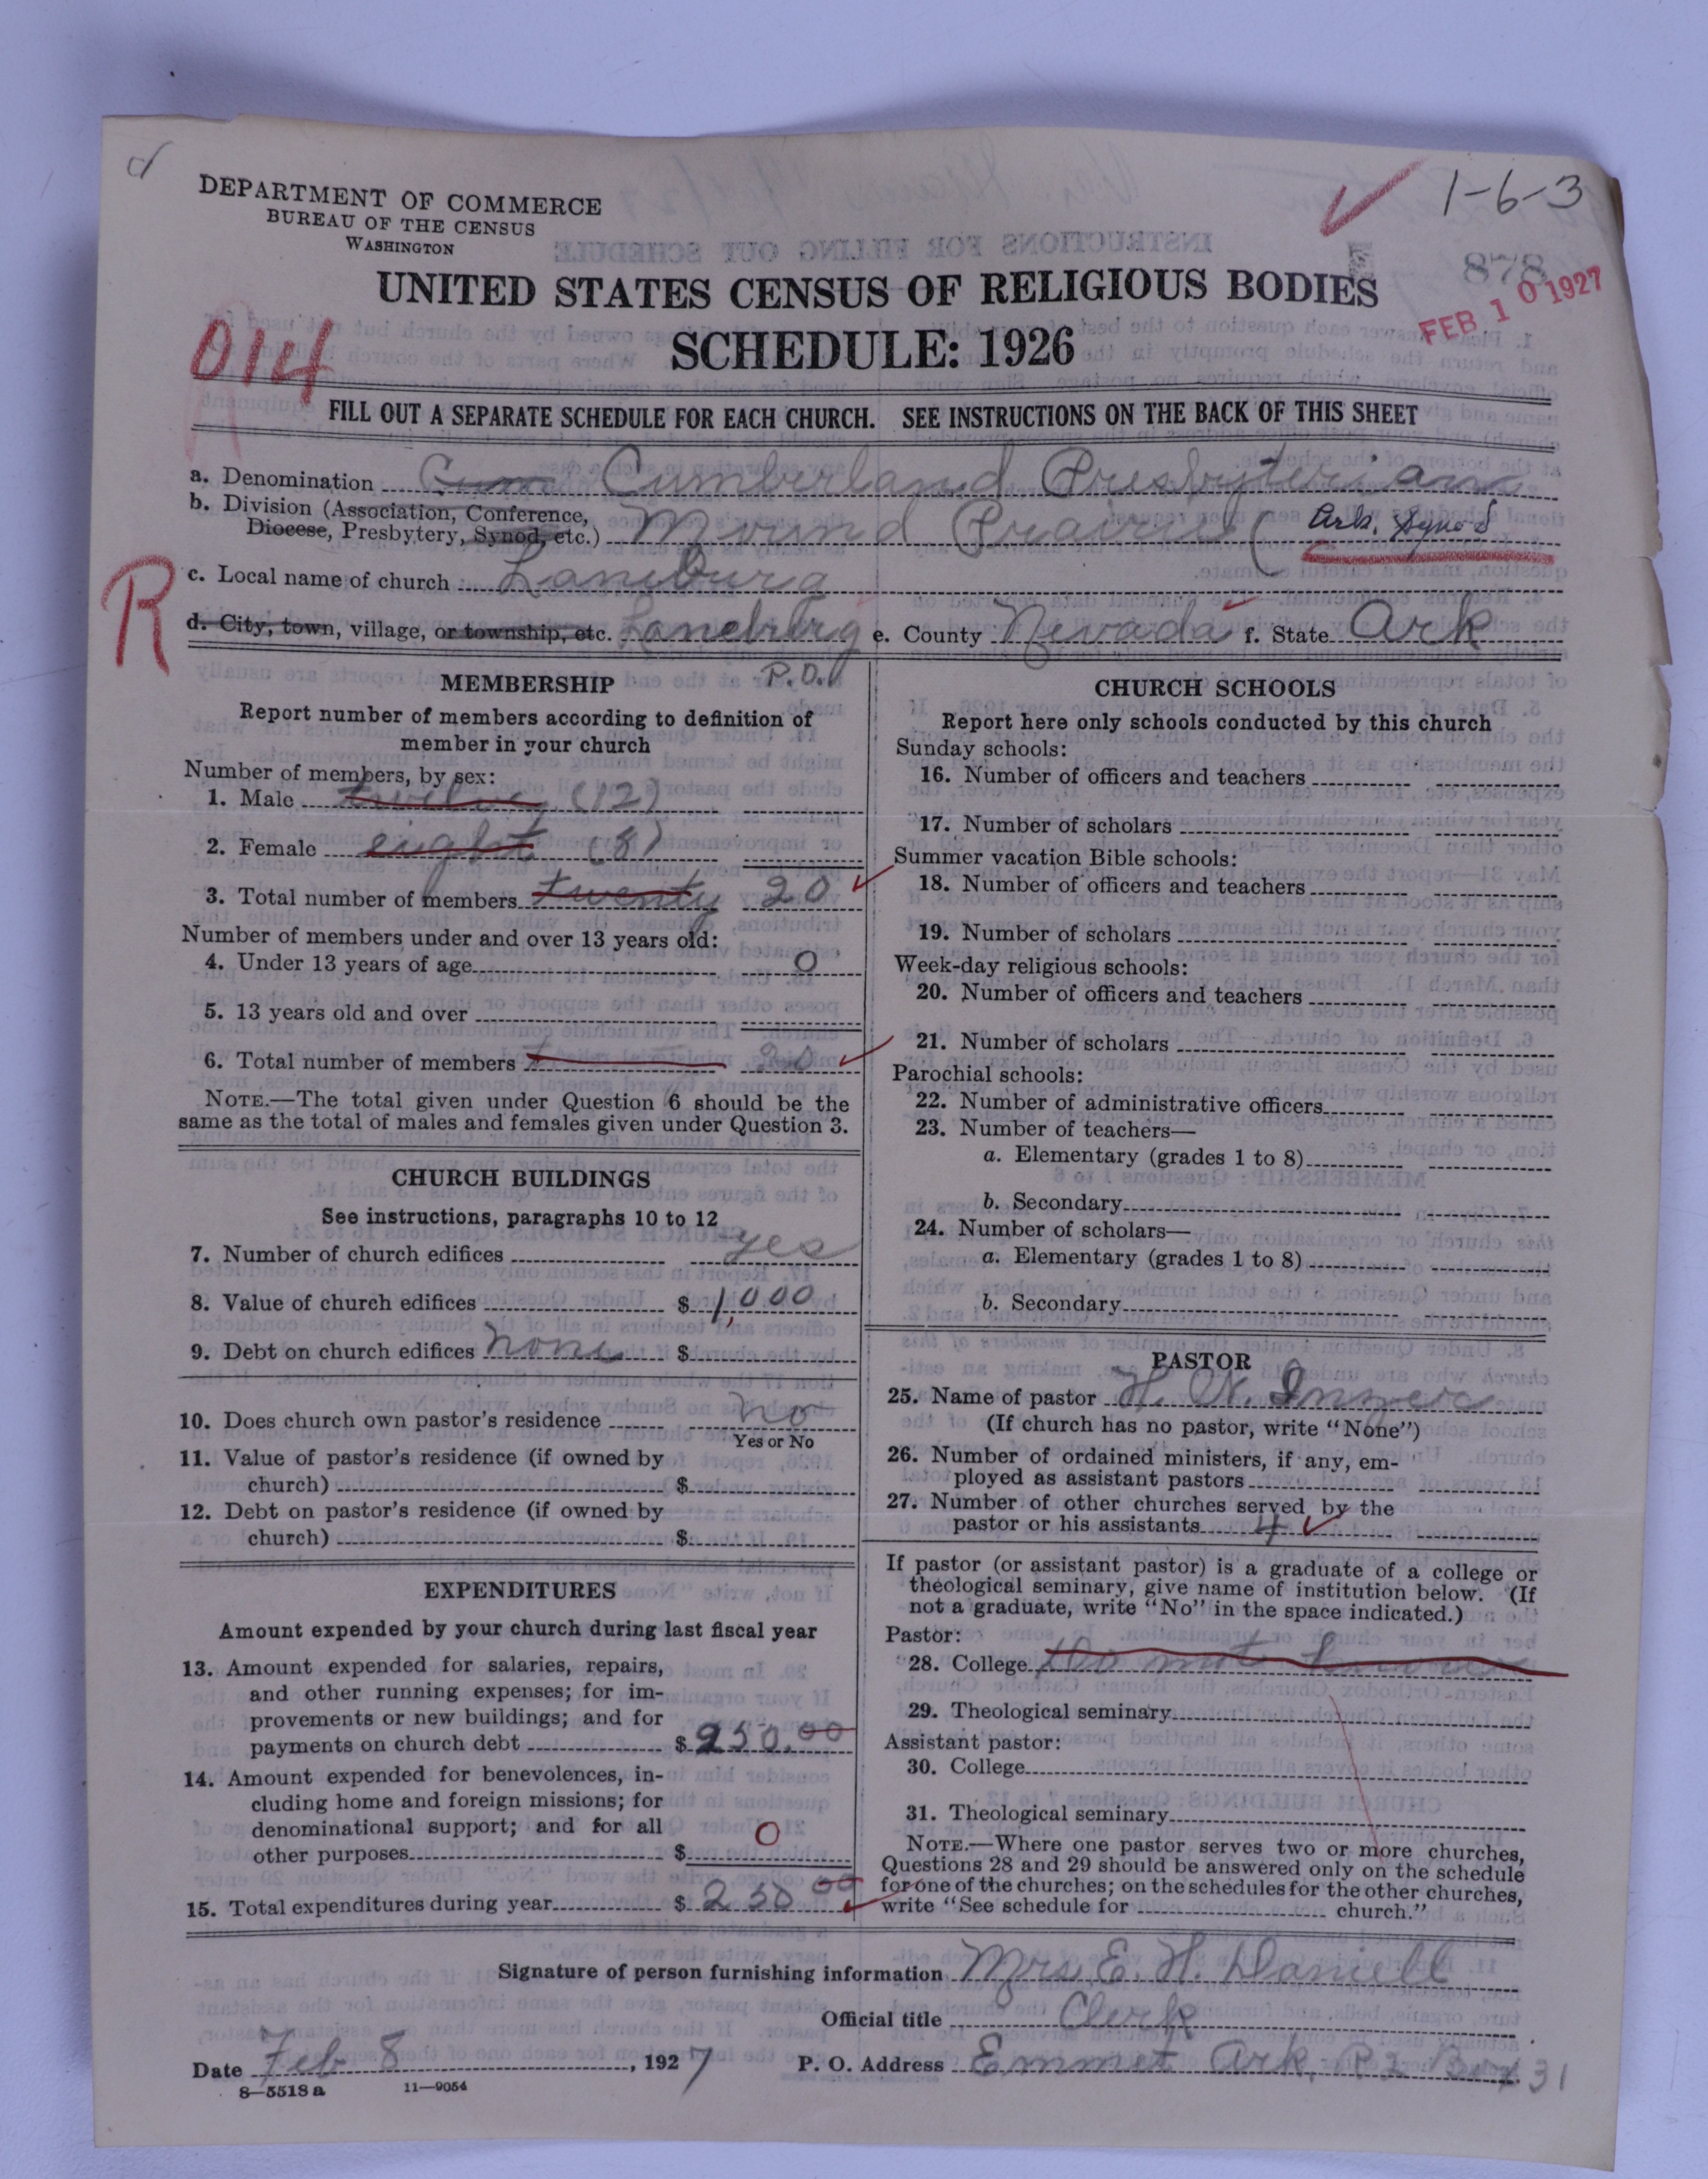 DEPARTMENT OF COMMERCE
BUREAU OF THE CENSUS
WASHINGTON
1-6-3
878
FEB 10 1927
UNITED STATES CENSUS OF RELIGIOUS BODIES
SCHEDULE: 1926
014
FILL OUT A SEPARATE SCHEDULE FOR EACH CHURCH. SEE INSTRUCTIONS ON THE BACK OF THIS SHEET
a. Denomination Cum Cumberland Presbyterian
b. Division (Association, Conference, Diocese, Presbytery, Synod, etc.) Mound Prairie (Ark. Synod
R
c. Local name of church Laneburg
d. City, town, village, or township, etc. Laneburg e. County Nevada f. State Ark
P.O.
MEMBERSHIP
Report number of members according to definition of
member in your church
Number of members, by sex:
1. Male twelve (12)
2. Female eight (8)
3. Total number of members twenty 20
Number of members under and over 13 years old:
4. Under 13 years of age 0
5. 13 years old and over
6. Total number of members 20
NOTE.—The total given under Question 6 should be the
same as the total of males and females given under Question 3.
CHURCH BUILDINGS
See instructions, paragraphs 10 to 12
7. Number of church edifices yes
8. Value of church edifices $ 1,000
9. Debt on church edifices none $
10. Does church own pastor's residence no
Yes or No
11. Value of pastor's residence (if owned by
church) $
12. Debt on pastor's residence (if owned by
church) $
EXPENDITURES
Amount expended by your church during last fiscal year
13. Amount expended for salaries, repairs,
and other running expenses; for im-
provements or new buildings; and for
payments on church debt $ 250.00
14. Amount expended for benevolences, in-
cluding home and foreign missions; for
denominational support; and for all
other purposes $ 0
15. Total expenditures during year $ 250 00
CHURCH SCHOOLS
Report here only schools conducted by this church
Sunday schools:
16. Number of officers and teachers
17. Number of scholars
Summer vacation Bible schools:
18. Number of officers and teachers
19. Number of scholars
Week-day religious schools:
20. Number of officers and teachers
21. Number of scholars
Parochial schools:
22. Number of administrative officers
23. Number of teachers—
a. Elementary (grades 1 to 8)
b. Secondary
24. Number of scholars—
a. Elementary (grades 1 to 8)
b. Secondary
PASTOR
25. Name of pastor H. N.
(If church has no pastor, write "None")
26. Number of ordained ministers, if any, em-
ployed as assistant pastors
27. Number of other churches served by the
pastor or his assistants 4
If pastor (or assistant pastor) is a graduate of a college or
theological seminary, give name of institution below. (If
not a graduate, write "No" in the space indicated.)
Pastor:
28. College do not know
29. Theological seminary
Assistant pastor:
30. College
31. Theological seminary
NOTE.—Where one pastor serves two or more churches,
Questions 28 and 29 should be answered only on the schedule
for one of the churches; on the schedules for the other churches,
write "See schedule for church."
Signature of person furnishing information Mrs. E. H. Daniell
Official title Clerk
Date Feb 8, 1927 P. O. Address Emmet Ark, R2 Box 31
8—5518 a 11—9054